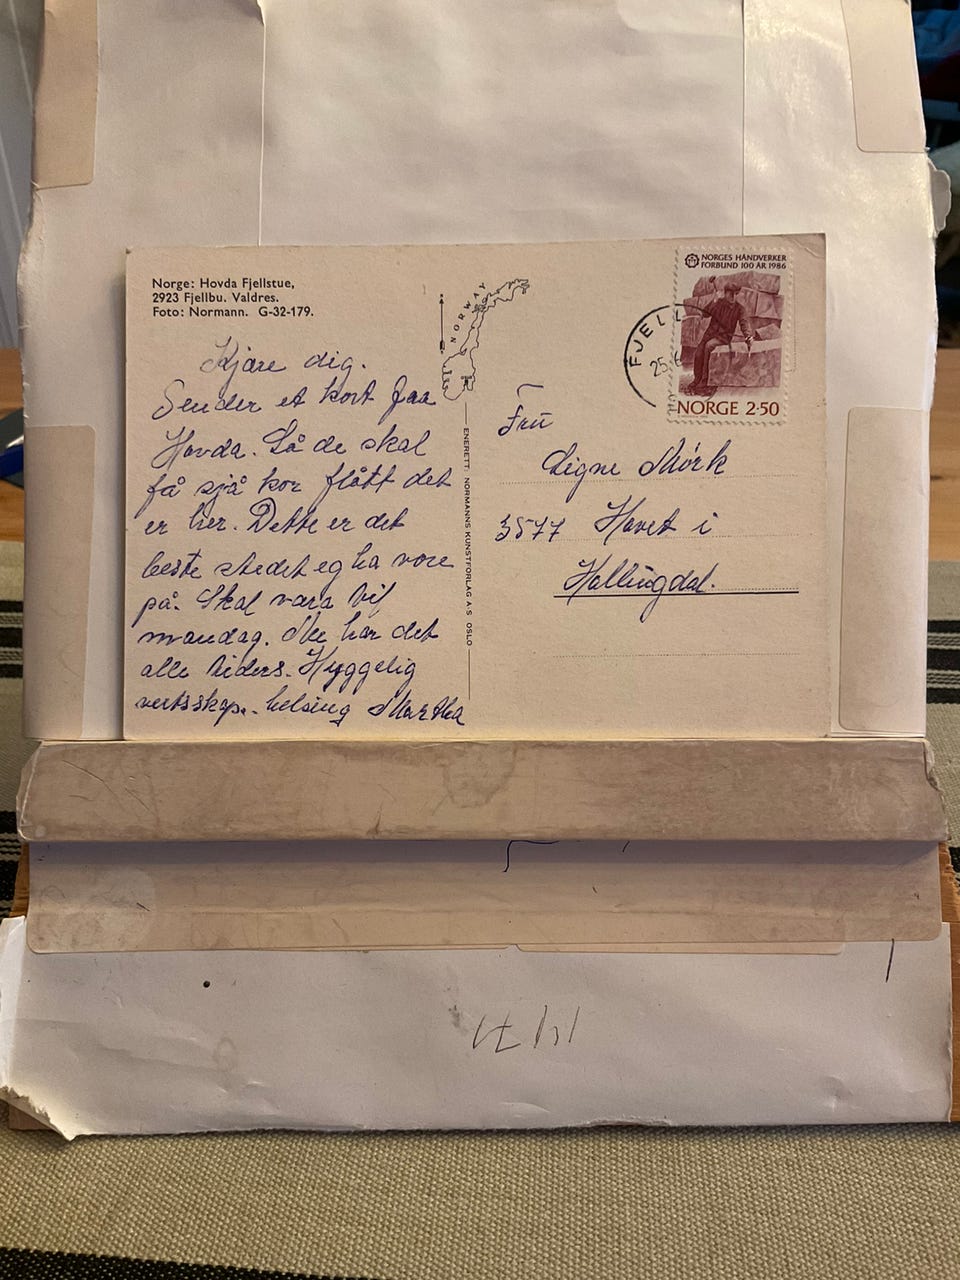 Norge: Hovda Fjellstue,
2923 Fjellbu. Valdres.
Foto: Normann. G-32-179.
Kjære dig.
Sender et kort fra
Hovda. Så de skal
få sjå kor flått det
er her. Dette er det
beste stedet eg ha vore
på. Skal vara til
mandag. Me har det
alle tiders. Hyggelig
vertsskap. helsing Martha
NORWAY
ENERETT: NORMANNS KUNSTFORLAG A·S OSLO
NORGES HÅNDVERKER
FORBUND 100 ÅR 1986
NORGE 2·50
FJELL
25.6
Fru
Signe Mørk
3577 Hovet i
Hallingdal.